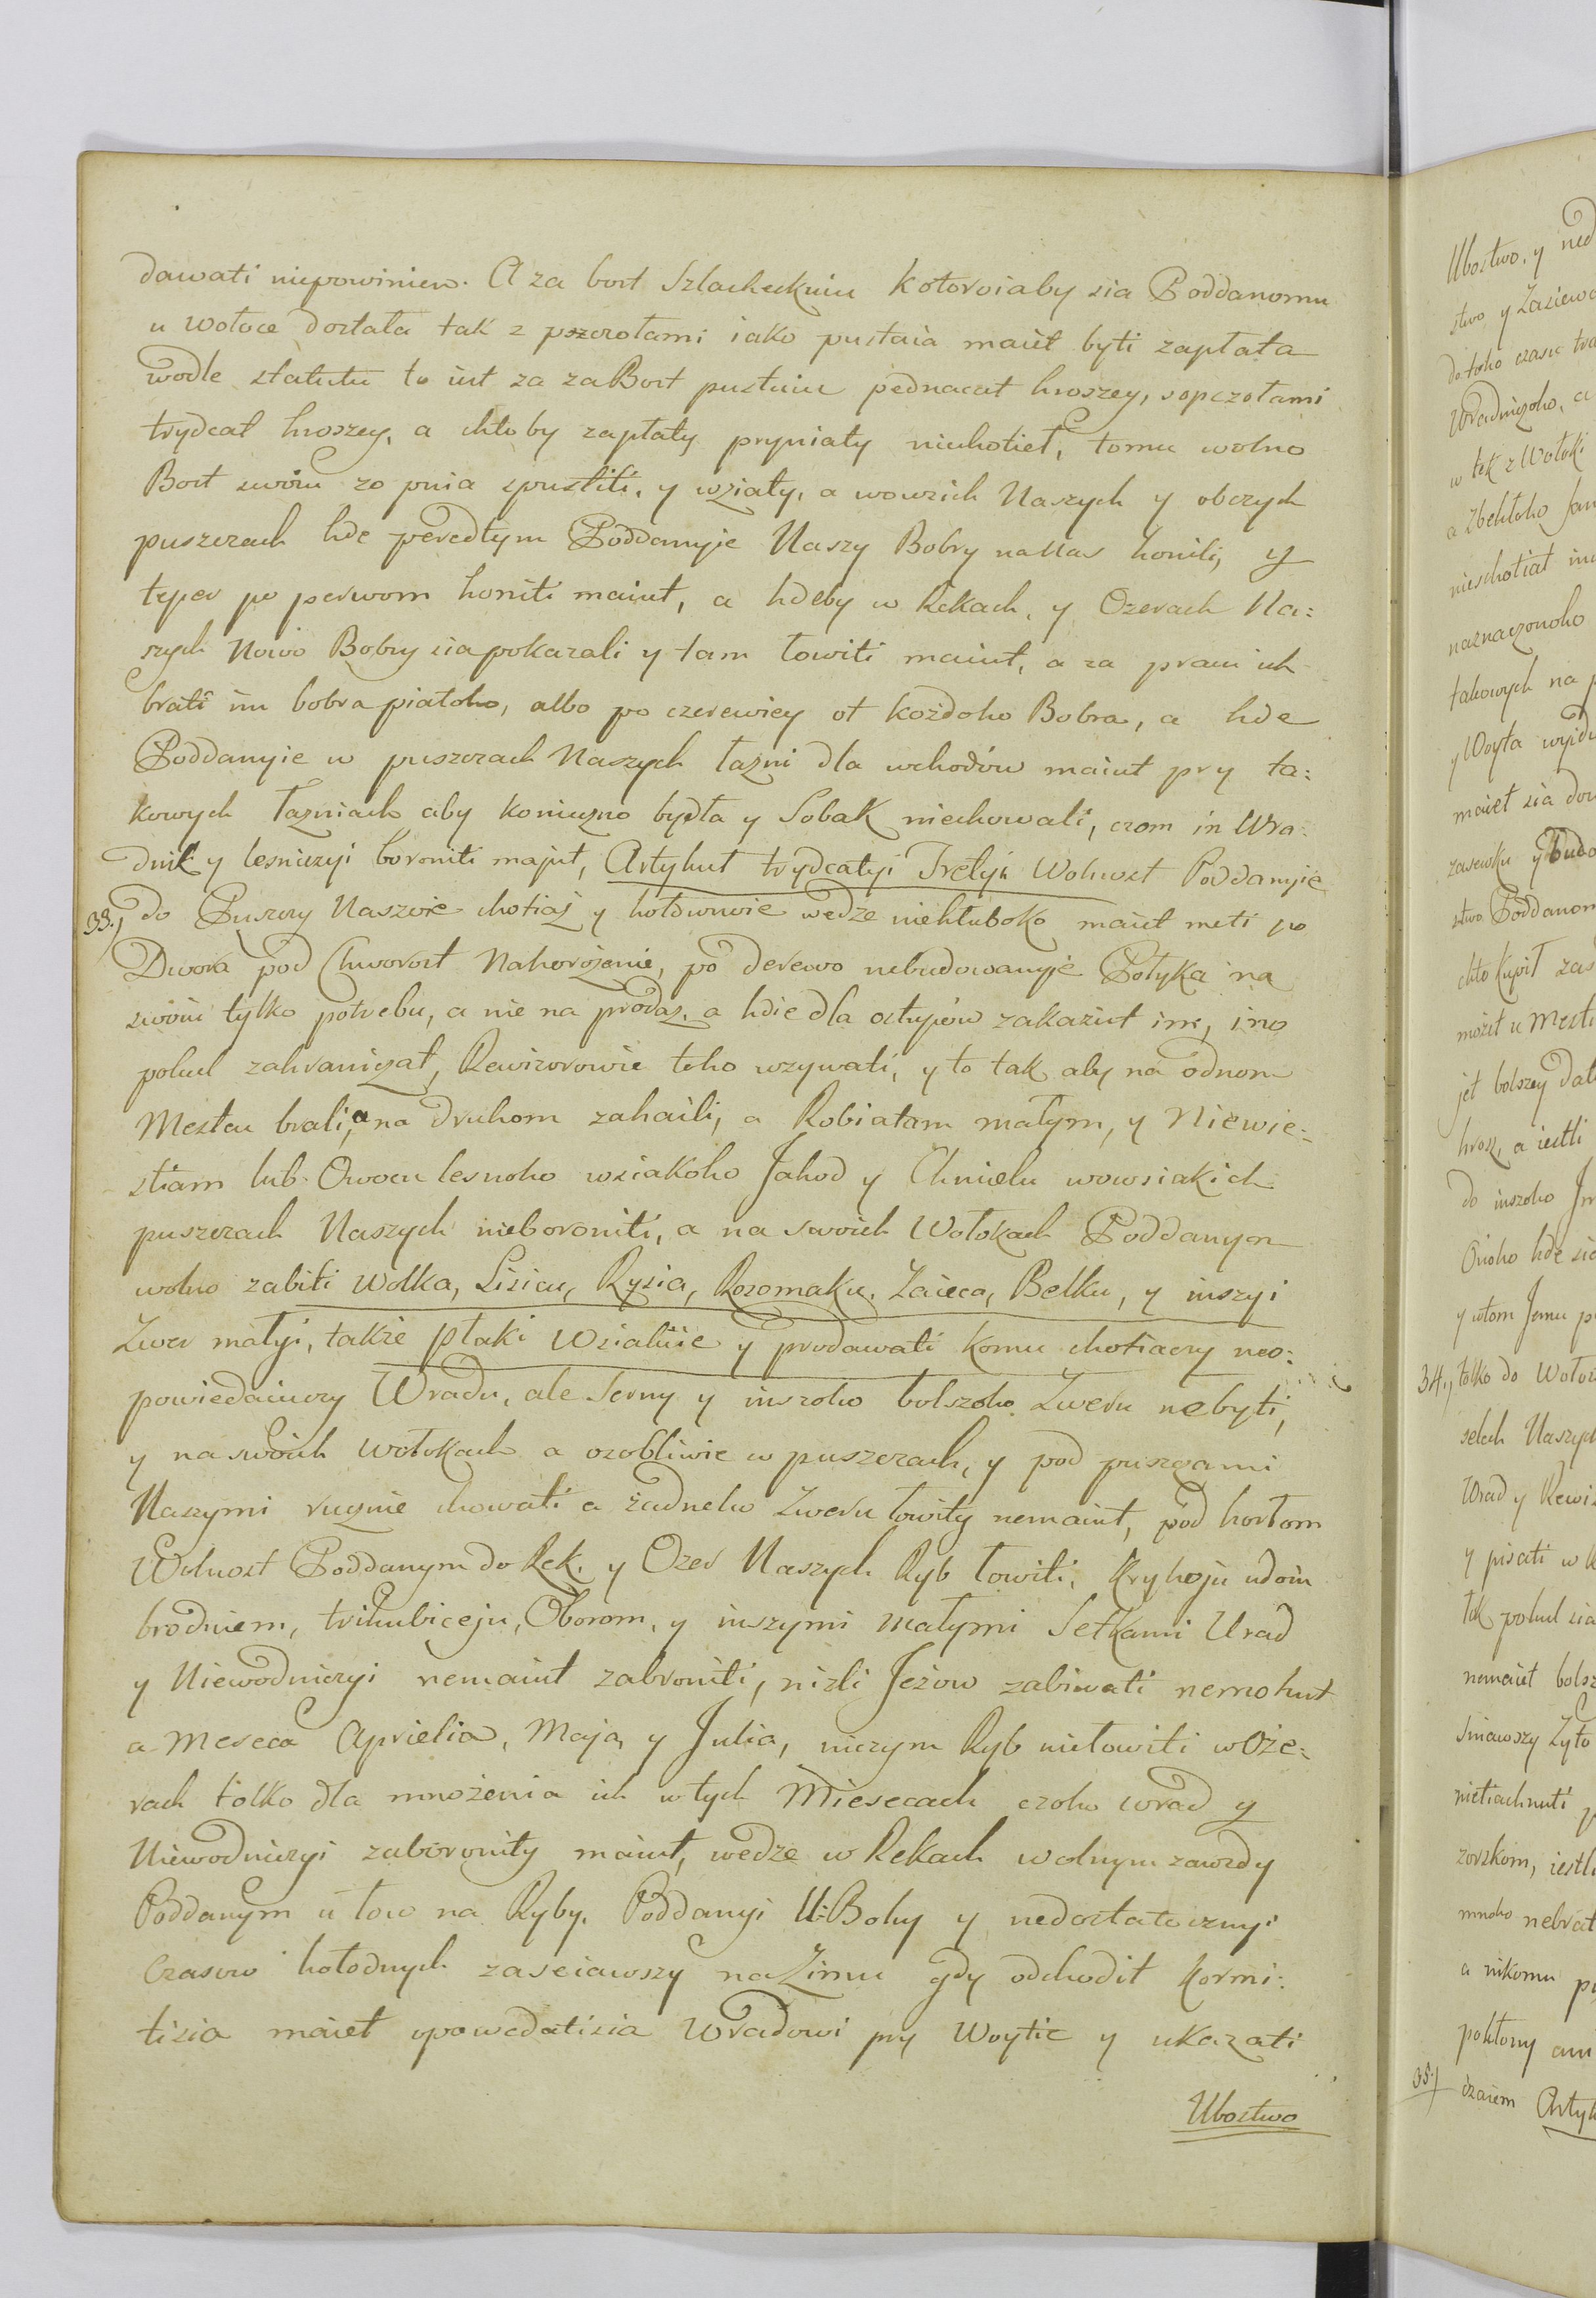 dawati niepowinien. A za bort Szlacheckuiu kotoroiaby sia Poddanomu
u wołoce dostała tak z pszczołami iako pustaia maiet byti zapłata
wodle statutu to iest za zaBort pustuiu pednacat hroszey, sopczołami
trydcat hroszey, a chtoby zapłaty pryniaty niechotieł, tomu wolno
Bort swoiu zo pnia spustiti, y wziaty, a wowsich Naszych y obczych
puszczach hde peredtym Poddanyje Naszy Bobry na Nas honili, y
teper po perwom honiti maiut, a hdeby w Rekach, y Ozerach Na:
szych Nowo Bobry sia pokazali y tam łowiti maiut, a za praui ich
brati im bobra piatoho, albo po czerewiey ot kożdoho Bobra, a hde
Poddanyie w puszczach Naszych łazni dla wchodów maiut pry ta:
kowych łazniach aby koniuzno bydła y Sobak niechowali, czom in Wra:
dnik y lesniczyi boroniti majut, Artykuł trydcatyi Tretyi Wolnost Poddanyie
33.) do Puszczy Naszoie chotiaj y hołdwnoie wedze niehłuboko maiet meti po
Dwora pod Chworost Nahorożenie, po derewo nebudowanyie Potyka na
swoiu tylko potrebu, a nie na prodaz, a hdie dla ostupów zakazut im, ino
pokul zahranizat, Rewizorowie toho uzywati, y to tak aby na odnom
Mestcu brali, a na druhom zahaili, a Robiatam małym, y Niewie:
stiam lub Owocu lesnoho wsiakoho Jahod y Chmielu wowsiakich
puszczach Naszych nieboroniti, a na swoich Wołokach Poddanym
wolno zabiti Wolka, Lisicu, Rysia, Rosomaku, Zaieca, Bełku, y inszyi
Zwer małyi, także ptaki Wsialiie y prodawati komu chotiaczy neo:
powiedaiuczy Wradu, ale Serny y inszoho bolszoho Zweru nebyti,
y na swoich wołokach a osobliwie w puszczach, y pod puszczami
Naszymi rucznic chowati a żadneho zweru łowity nemaiut, pod horłom
Wolnost Poddanym do Rek, y Ozer Naszych Ryb łowiti, Kryhoju udoiu
brodniem, trihubiceju, Oborom, y inszymi małymi Setkami Urad
y Niewodniczyi nemaiut zabroniti, nizli Jezow zabiwati nemohut
a Meseca Aprielia, Maja, y Julia, niczym Ryb niełowiti w Oze:
rach tolko dla mnożenia ich w tych Miesecach czoho wrad y
Niewodniczyi zaboronity maiut, wedze w Rekach wolnym zawzdy
Poddanym u łow na Ryby. Poddanyi U:Bohy y nedostatocznyi
Czasow hołodnych zaseiawszy na Zimu gdy odchodit kormi:
tisia maiet opowedatisia Wradowi pry Woytie y ukazati
Ubostwo
Ubostwo, y
stwo y Zasiew
do toho czasu
Wradniczoho, a
w tek z Wołoki
a Zbehłoho
nieschotiat
naznaczonoho
takowych na
y Woyta
maiet sia
zasewku y
stwo Poddanom
chto kupit zas
możet u Mest
jet bolszey
hrosz, a iestli
do inszoho
Onoho hde sia
y wtom Jemu
34., tolko do
selech Naszych
Wrad y Rewiz
y pisati w
tak pokul sia
nemaiet bolsz
Smiawszy Żyto
nietiachnuti
zorskom, iestli
mnoho nebrat
a nikomu
pokłony
35.) czaiem Artyk